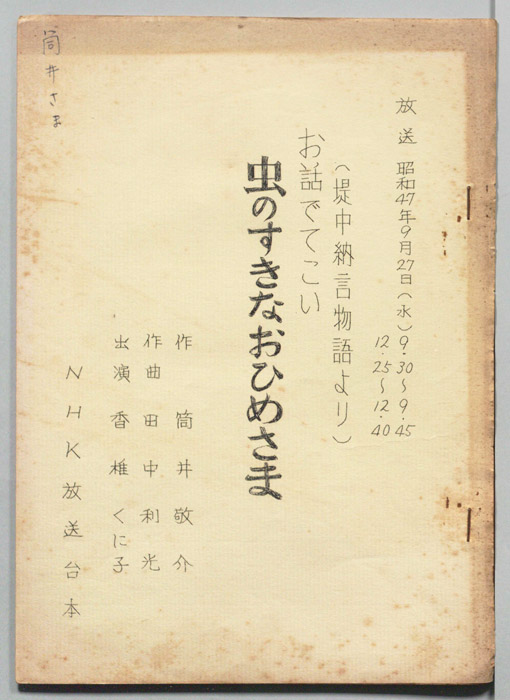 筒井さま
放送 昭和47年9月27日(水)9.30~9.45
12.25~12.40
(堤中納言物語より)
お話でてこい
虫のすきなおひめさま
作 筒井敬介
作曲 田中利光
出演 香椎くに子
NHK放送台本